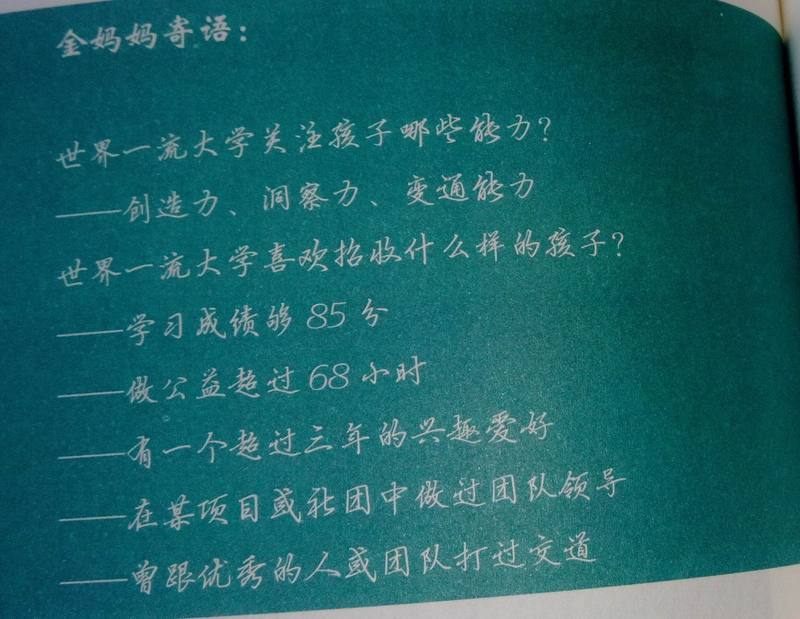 金妈妈寄语：
世界一流大学关注孩子哪些能力？
——创造力、洞察力、变通能力
世界一流大学喜欢招收什么样的孩子？
——学习成绩够 85 分
——做公益超过 68 小时
——有一个超过三年的兴趣爱好
——在某项目或社团中做过团队领导
——曾跟优秀的人或团队打过交道